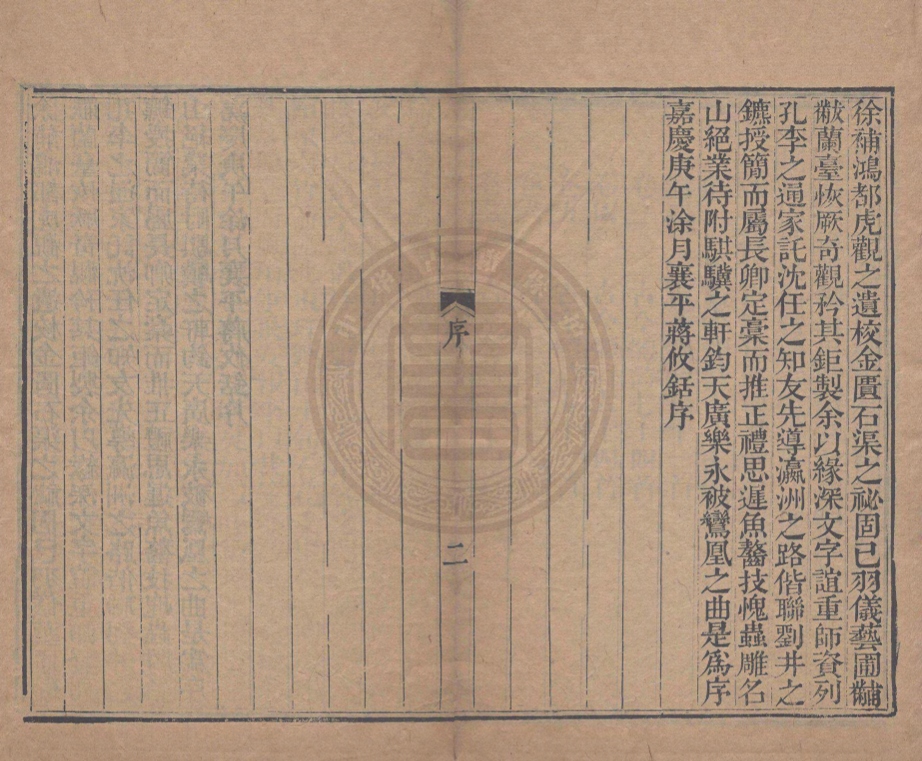 徐補鴻都虎觀之遺校金匱石渠之祕固已羽儀藝圃黼
黻蘭臺恢厥奇觀矜其鉅製余以緣深文字誼重師資列
孔李之通家託沈任之知友先導瀛洲之路偕聯劉井之
鑣授簡而屬長卿定稾而推正禮思遲魚麟技愧蟲雕名
山絕業待附騏驥之軒鈞天廣樂永被鸞凰之曲是為序
嘉慶庚午涂月襄平蔣攸銛序
序
二